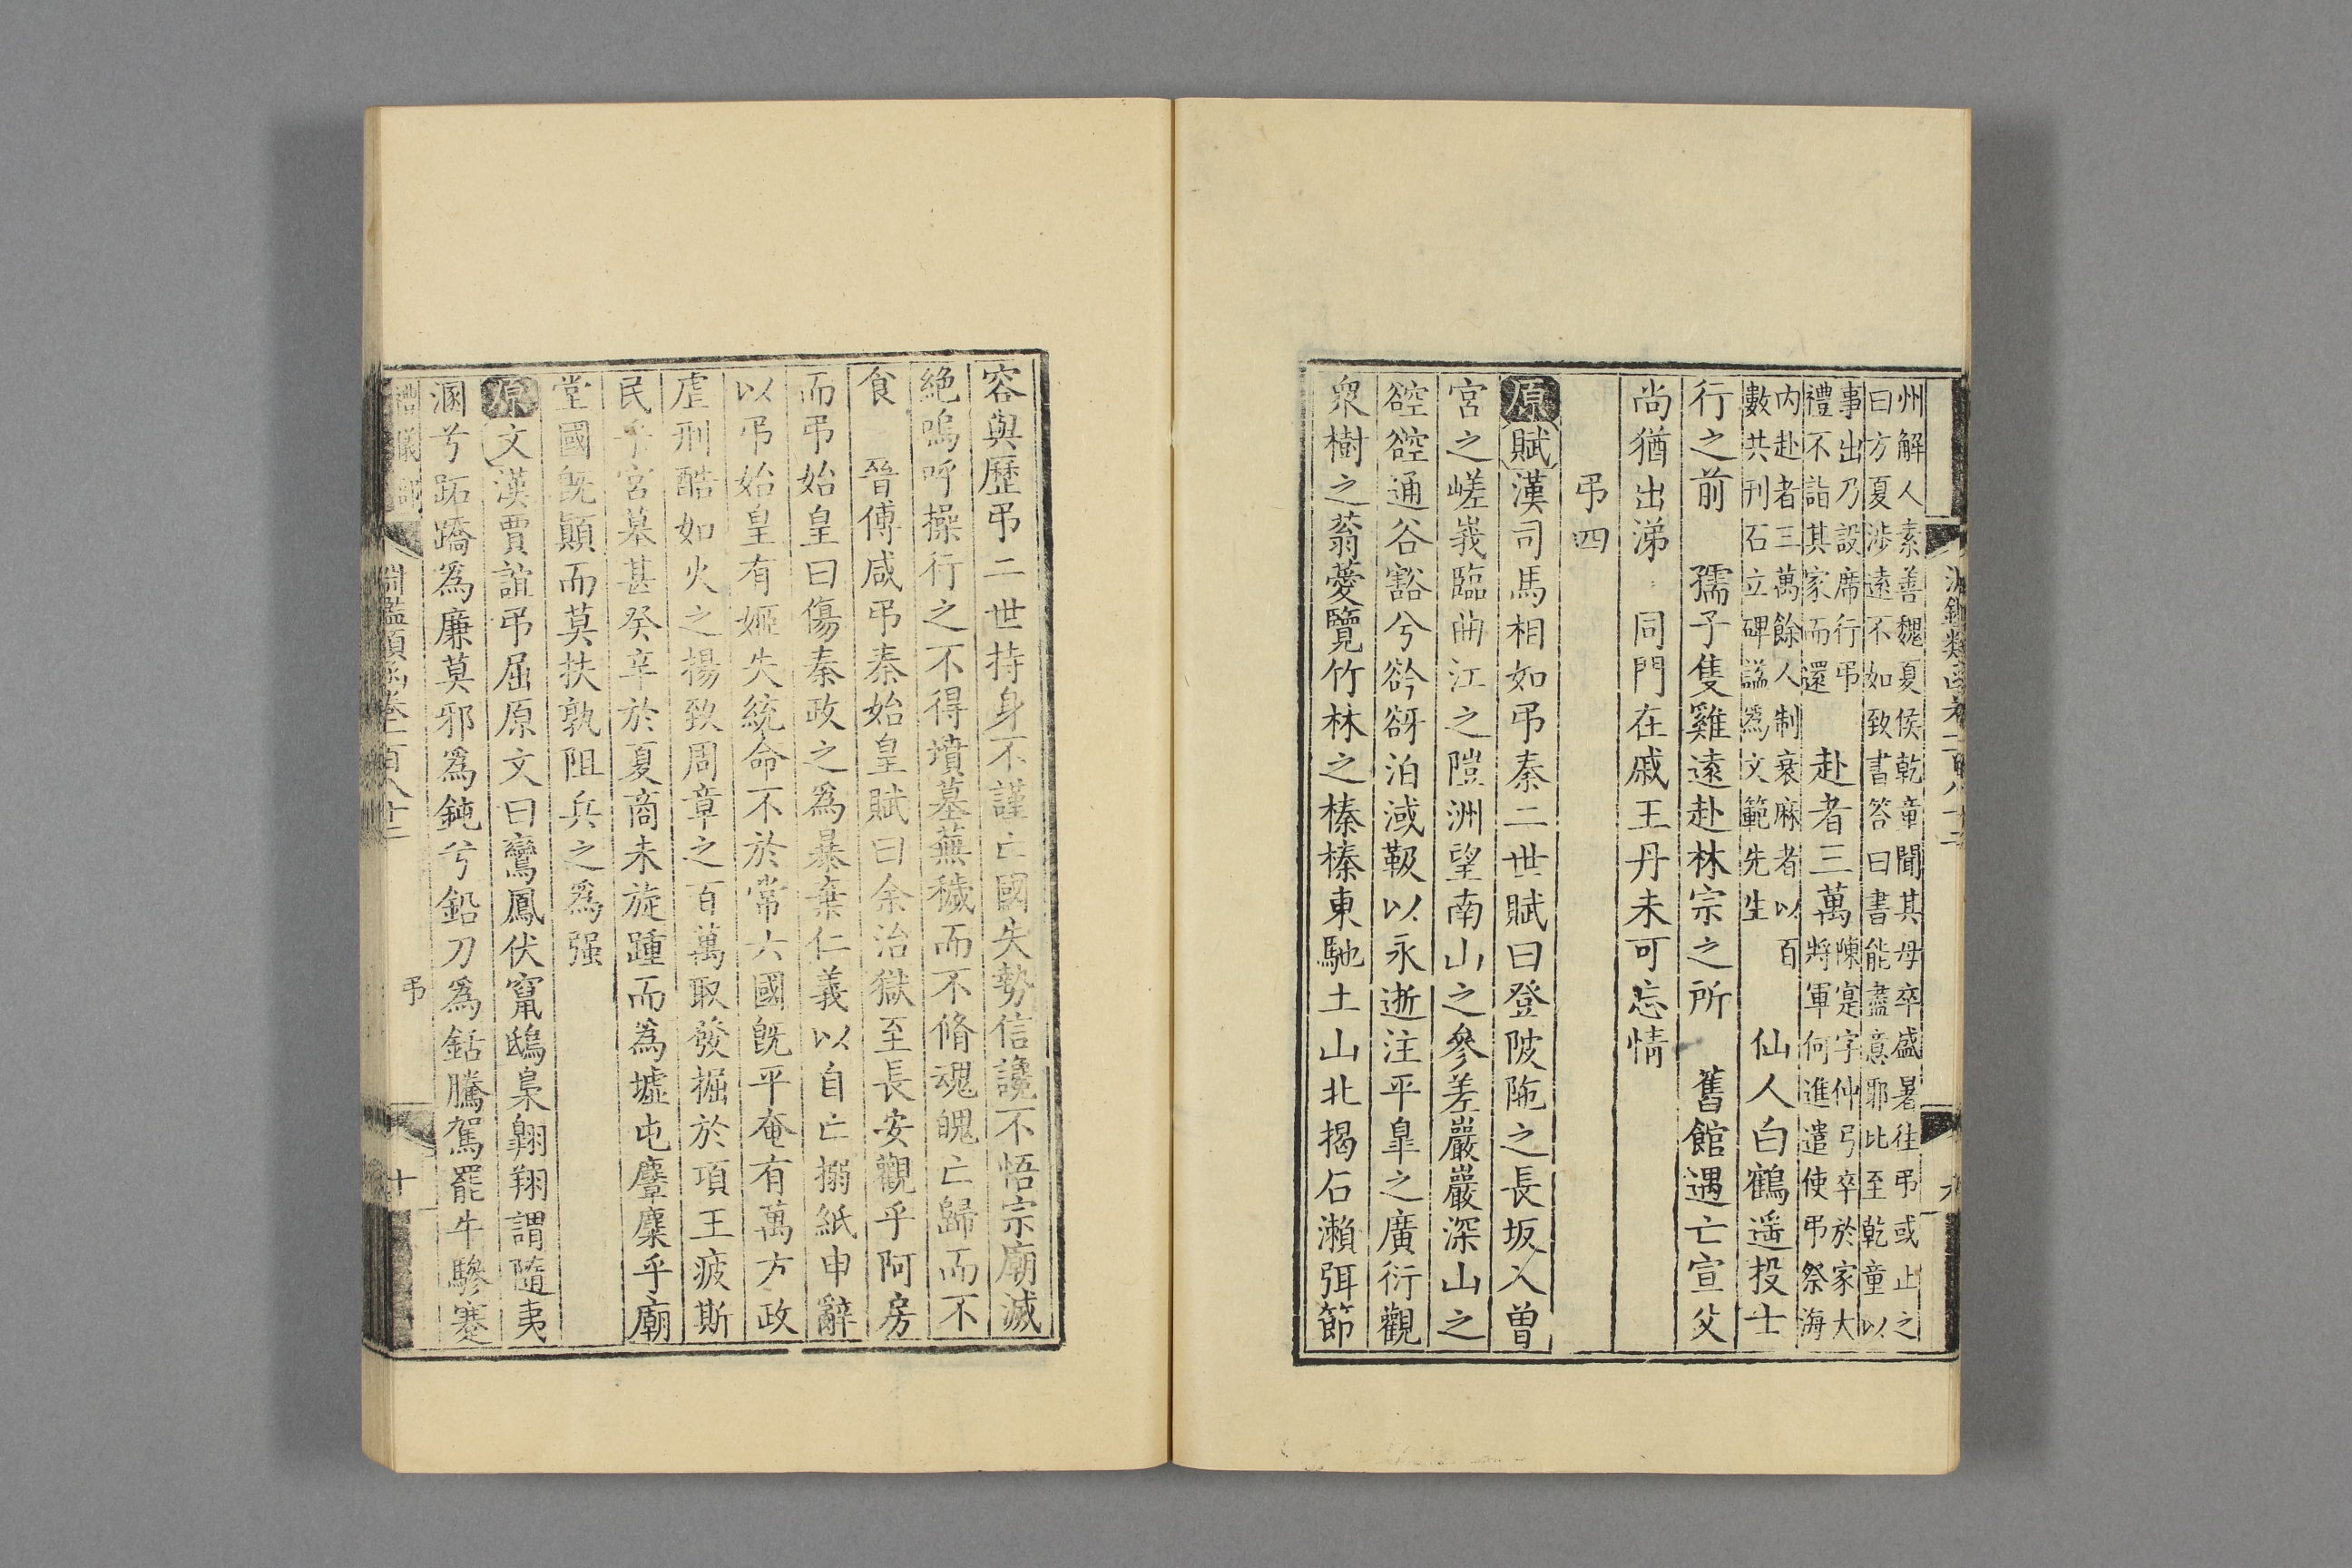 州解人素善魏夏侯乾童聞其母卒盛暑往弔或止之
曰方夏涉遠不如致書答曰書能盡意邪比至乾童以
事出乃設席行弔
禮不詣其家而還
赴者三萬
陳寔字仲弓卒於家大
將軍何進遣使弔祭海
内赴者三萬餘人制衰麻者以百
數共刊石立碑謚爲文範先生
仙人白鶴遥投士
行之前 孺子隻雞遠赴林宗之所 舊館遇亡宣父
尚猶出涕 同門在戚王丹未可忘情
弔四
原賦漢司馬相如弔秦二世賦曰登陂陁之長坂入曾
宮之嵯峩臨曲江之隑洲望南山之參差巖巖深山之
谾谾通谷豁兮谽谺泊淢靸以永逝注平臯之廣衍觀
衆樹之蓊薆覽竹林之榛榛東馳土山北揭石瀨弭節
容與歷弔二世持身不謹亡國失勢信讒不悟宗廟滅
絶嗚呼操行之不得墳墓蕪穢而不脩魂魄亡歸而不
食 晉傅咸弔秦始皇賦曰余治獄至長安觀乎阿房
而弔始皇曰傷秦政之爲暴棄仁義以自亡搦紙申辭
以弔始皇有姬失統命不於常六國旣平奄有萬方政
虐刑酷如火之揚致周章之百萬取發掘於項王疲斯
民乎宮墓甚癸辛於夏商未旋踵而爲墟屯麞麋乎廟
堂國旣顛而莫扶孰阻兵之爲强
原文漢賈誼弔屈原文曰鸞鳳伏竄鴟梟翺翔謂隨夷
溷兮跖蹻爲廉莫邪爲鈍兮鉛刀爲銛騰駕罷牛驂蹇
禮儀部
淵鑑類函卷一百八十二
弔
十